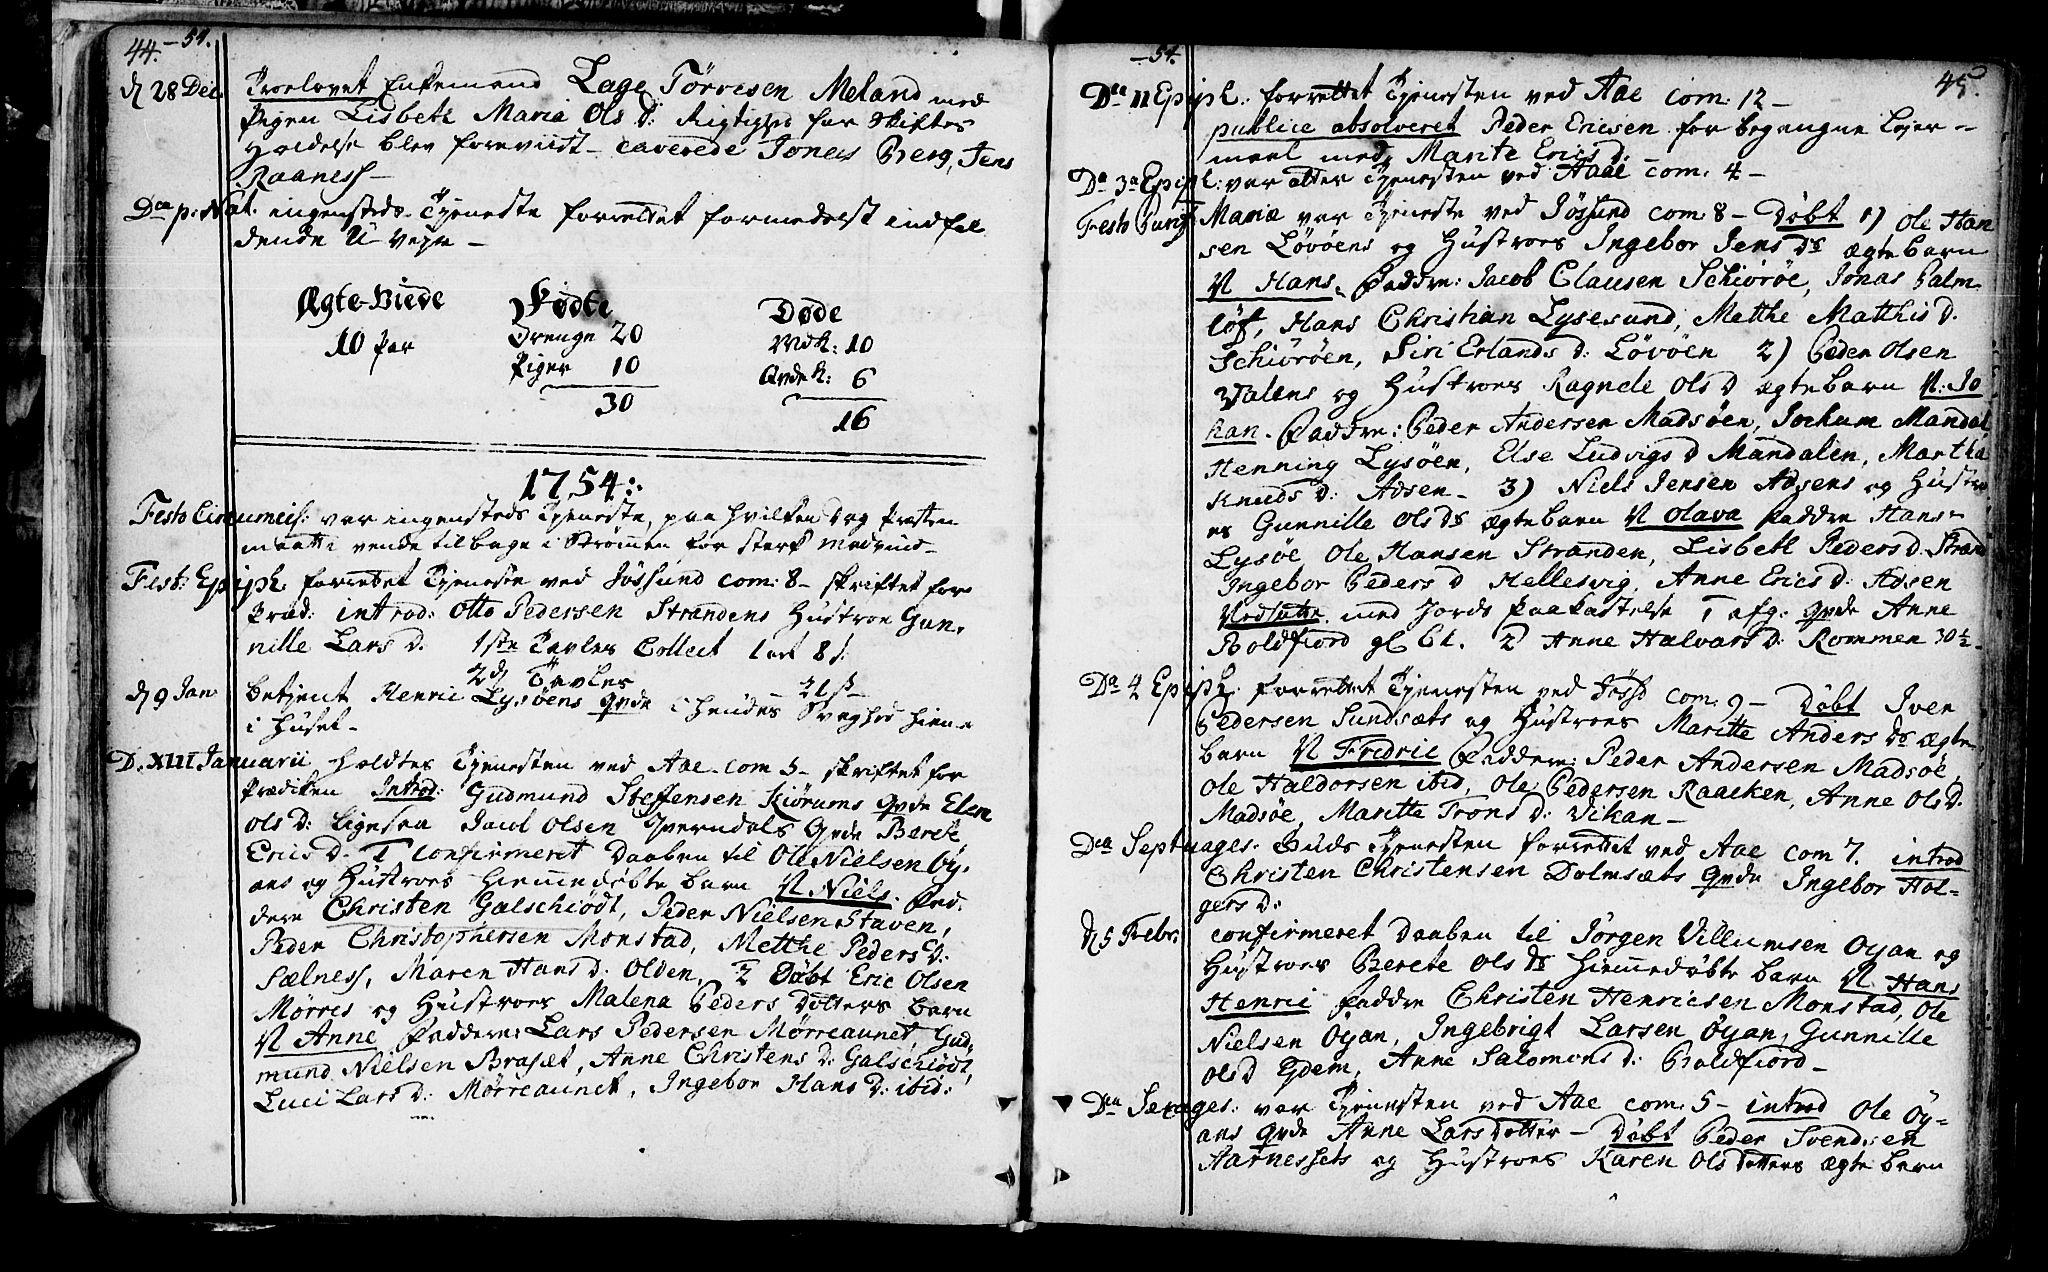 44. -54.
d 28 Dec. Troelovet Enkemand Lage Törresen Meland med
Pigen Lisbeth Maria Ols D: Rigtighed for Skiftes
Holdelse blev foreviist - caverede Jonas Berg, Jens
Raaness -
Dca p. Nat. ingensteds Tjeneste forrettet formedelst indfal
dende U-vejr -
Ægte-Viede Födte Döde
10 Par Drenge 20 Mdk: 10
Piger 10 Qvdek: 6
30 16
1754:
Festo Circumcis: var ingensteds Tjeneste, paa hvilken Dag Præsten
maatte vende tilbage i Strömen for sterk Modvind -
Fest: Epiph. forrettet Tjeneste ved Jössund com: 8 - skriftet for
Præd: introd: Otto Pedersen Strandens Hustroe Gun,
nille Lars D. 1ste Tavles Collect 1 ort 8 s.
2d Tavles 21 s -
d 9 Jan. betjent Henric Lysöens Qvde i hendes Svaghed hiem
i Huset -
D. XIII Januarii holdtes Tjenesten ved Aae com 5 - skriftet for
Prædiken Introd: Gudmund Steffensen Kiörums Qvde Elen
Ols D: ligesaa Jacob Olsen Hverndals Qvde Berete
Erics D. 1 Confirmeret Daaben til Ole Nielsen Öy,
ans og Hustroes hiemedöbte barn N Niels. Fad,
dere Christen Galschiödt, Peder Nielsen Staven,
Peder Christophersen Monstad, Metthe Peders D:
Sælness, Maren Hans D: Olden, 2 Döbt Eric Olsen
Mörres og Hustroes Malena Peders Dotters barn
N Anne Faddere: Lars Pedersen Mörreaunet, Gud,
mund Nielsen Brasæt, Anne Christens D: Galschiödt,
Luci Lars D: Mörreaunet, Ingebor Hans D: ibid:
-54. 45.
Dca II Epiph: forrettet Tjenesten ved Aae com: 12 -
publice absolveret Peder Ericsen for begangne Lejer -
maal med Marite Erics D.
Da 3a Epiph: var atter Tjenesten ved Aae com: 4 -
Festo Purif. Mariæ var Tjeneste ved Jössund com: 8 - Döbt 1) Ole Han
sen Lövöens og Hustroes Ingebor Jens Ds ægte barn
N Hans, Faddre: Jacob Clausen Schiöröe, Jonas Palm,
löf, Hans Christian Lysesund, Methe Matthis D.
Schiöröen, Siri Erlands D: Lövöen 2) Peder Olsen
Dalens og Hustroes Ragnele Ols D ægte barn N: Jo
han. Faddre: Peder Andersen Madsöen, Jochum Mandal
Henning Lysöen, Else Ludvigs D Mandalen, Martha
Knuds D: Adsen - 3) Niels Jensen Adsens og Hustro
es Gunnille Ols Ds ægte barn N Olava Faddre Hans
Lysöe Ole Hansen Stranden, Lisbeth Peders D. Strand
Ingebor Peders D Hellesvig, Anne Erics D: Adsen
Nedsatte med Jords Paakastelse 1 afg: Qvde Anne
Boldfiord gl 61. 2 Anne Halvars D: Rommen 30 1/2 -
Da 4 Epiph. forrettet Tjenesten ved Jössd com: 9 - Döbt Iver
Pedersen Sundsæts og Hustroes Maritte Anders Ds ægte
barn N Fredric Faddere: Peder Andersen Madsöe,
Ole Haldorsen ibid, Ole Pedersen Raacken, Anne Ols D.
Madsöe, Maritte Trons D: Vikan -
Dca Septuages. Guds Tjenesten forrettet ved Aae com 7. introd
Christen Christensen Dolmsæts Qvde Ingebor Hol-
gers D:
d 5 Febr: confirmeret Daaben til Jörgen Villumsen Öyan og
Hustroes Berete Ols Ds hiemedöbte barn N Hans
Henric Faddre Christen Henricsen Monstad, Ole
Nielsen Öyan, Ingebrigt Larsen Öyan, Gunnille
Ols D Ejdem, Anne Salomons D: Boldfiord -
Dca Sexages: var Tjenesten ved Aae com: 5 - introd Ole Öy-
ans Qvde Anne Lars Dotter - Döbt Peder Svendsen
Aarnessets og Hustroes Karen Ols Dotters ægte barn